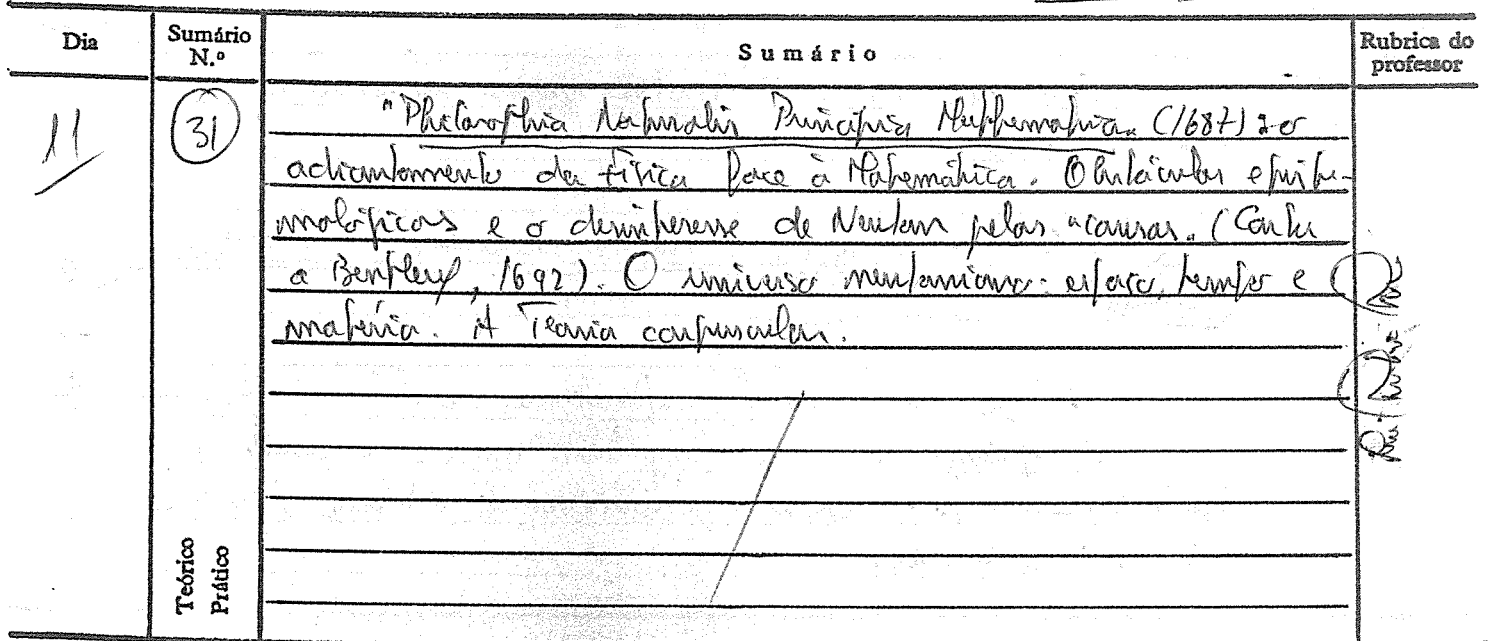 Dia
Sumário N.º
Sumário
Rubrica do professor
11
31
"Philosophia Naturalis Principia Mathematica" (1687): o
adiantamento da Física face à Matemática. Obstáculos episte-
mológicos e o desinteresse de Newton pelas "causas" (Carta
a Bentley, 1692). O universo newtoniano: espaço, tempo e
matéria. A Teoria corpuscular.
Teórico
Prático